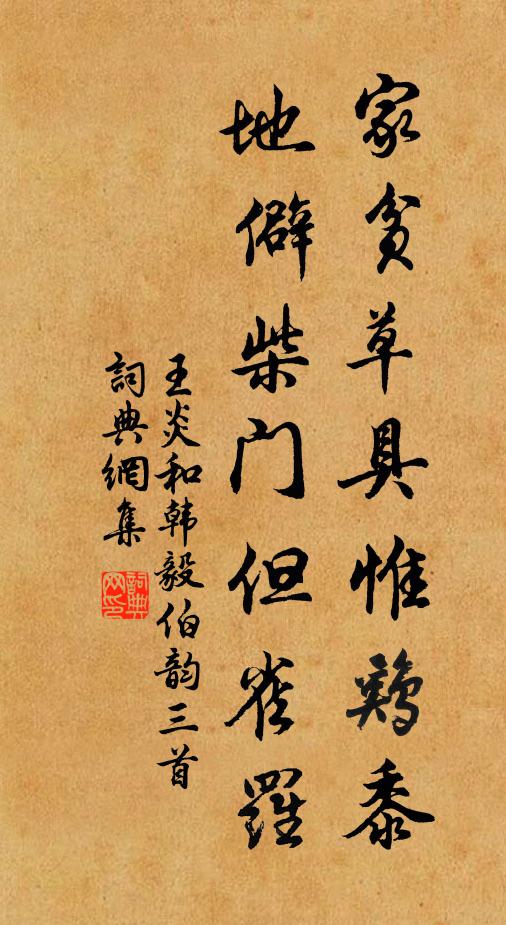 家貧草具惟鷄黍
地僻柴門但雀羅
王炎和韩毅伯韵三首
詞典網集
詞典
网印